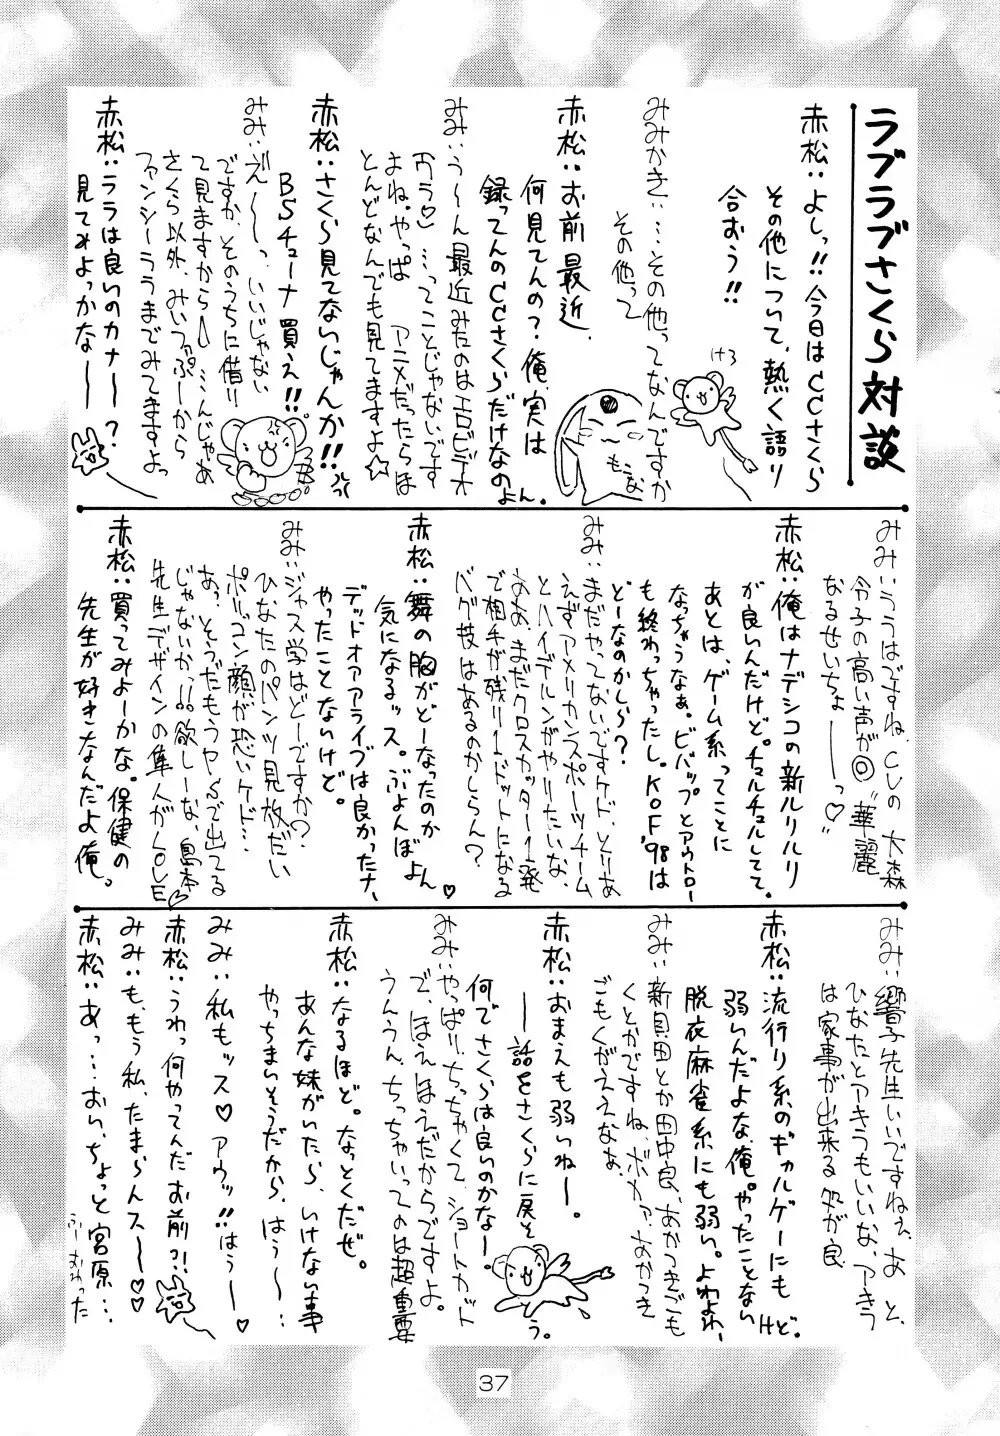 ラブラブさくら対談
赤松：よしっ!!今日はCCさくら
その他について、熱く語り
合おう!!
みみかき：…その他ってなんですか
その他って
けろ
もうな
赤松：お前最近
何見てんの？俺、実は
録ってんのCCさくらだけなの
よん。
みみ：う〜ん最近みたのはエロビデオ
おう♡…ってことじゃないです
よね。やっぱ アニメだったらほ
とんどなんでも見てますよ☆
赤松：さくら見てないじゃんか!!
BSチューナ買え!!
みみ：え〜〜っ、いいじゃない
ですか、そのうちに借り
て見ますから…んじゃあ
さくら以外、みぃつぷーから
ファンシーララまでみてますよっ
赤松：ララは良いのカナー？
見てみよっかなー
みみ：ララはですね、CVの大森
令子の高い声が◎"華麗
なるせいちょーーっ♡"
赤松：俺はナデシコの新ルリルリ
が良いんだけど。チュルチュルしてて。
あとは、ゲーム系ってことに
なっちゃうなぁ。ビバップとアウトロー
も終わっちゃったし。KOF'98は
どーなのかしら？
みみ：まだやってないですケド、とりあ
えずアメリカンスポーツチーム
とハイデルンがやりたいな、
ああ、まだクロスカッター1発
で相手が残り1ドットになる
バグ技はあるのかしらん？
赤松：舞の胸がどーなったのか
気になるッス。ぷよんぼよん♡
デッドオアアライブは良かったナ、
やったことないけど。
みみ：ジャス学はどーですか？
ひなたのパンツ見放だい
ポリゴン顔が恐いケド…
あっ、そうだもうP.S.で出てる
じゃないかっ。欲しーな、島本
先生デザインの隼人がLOVE♡
赤松：買ってみよーかな。保健の
先生が好きなんだよ俺。
みみ：響子先生いいですねぇ、あと、
ひなたとアキラもいいな、アキラ
は家事が出来る処が良
赤松：流行り系のギャルゲーにも
弱いんだよな、俺。やったことない
けど。
脱衣麻雀系にも弱い。よわよわ、
みみ：新貝田とか田中良、あかつきごも
くとかですね、ボカァ、あかつき
ごもくがええなぁ
赤松：おまえも弱いねー。
ー話をさくらに戻そ
う。
何でさくらは良いのかなー。
みみ：やっぱり、ちっちゃくて、ショートカット
で、ほえほえだからですよ。
うんうん、ちっちゃいってのは超重要
赤松：なるほど。なっとくだぜ。
あんな妹がいたら、いけない事
やっちまいそうだから、はぅ〜…
みみ：私もッス♡アウッ!!はぅー♡
赤松：うわっ何やってんだお前?!!
みみ：も、もう私、たまらんスー♡♡
赤松：あっ…おい、ちょっと宮原…
ふーおわった
37